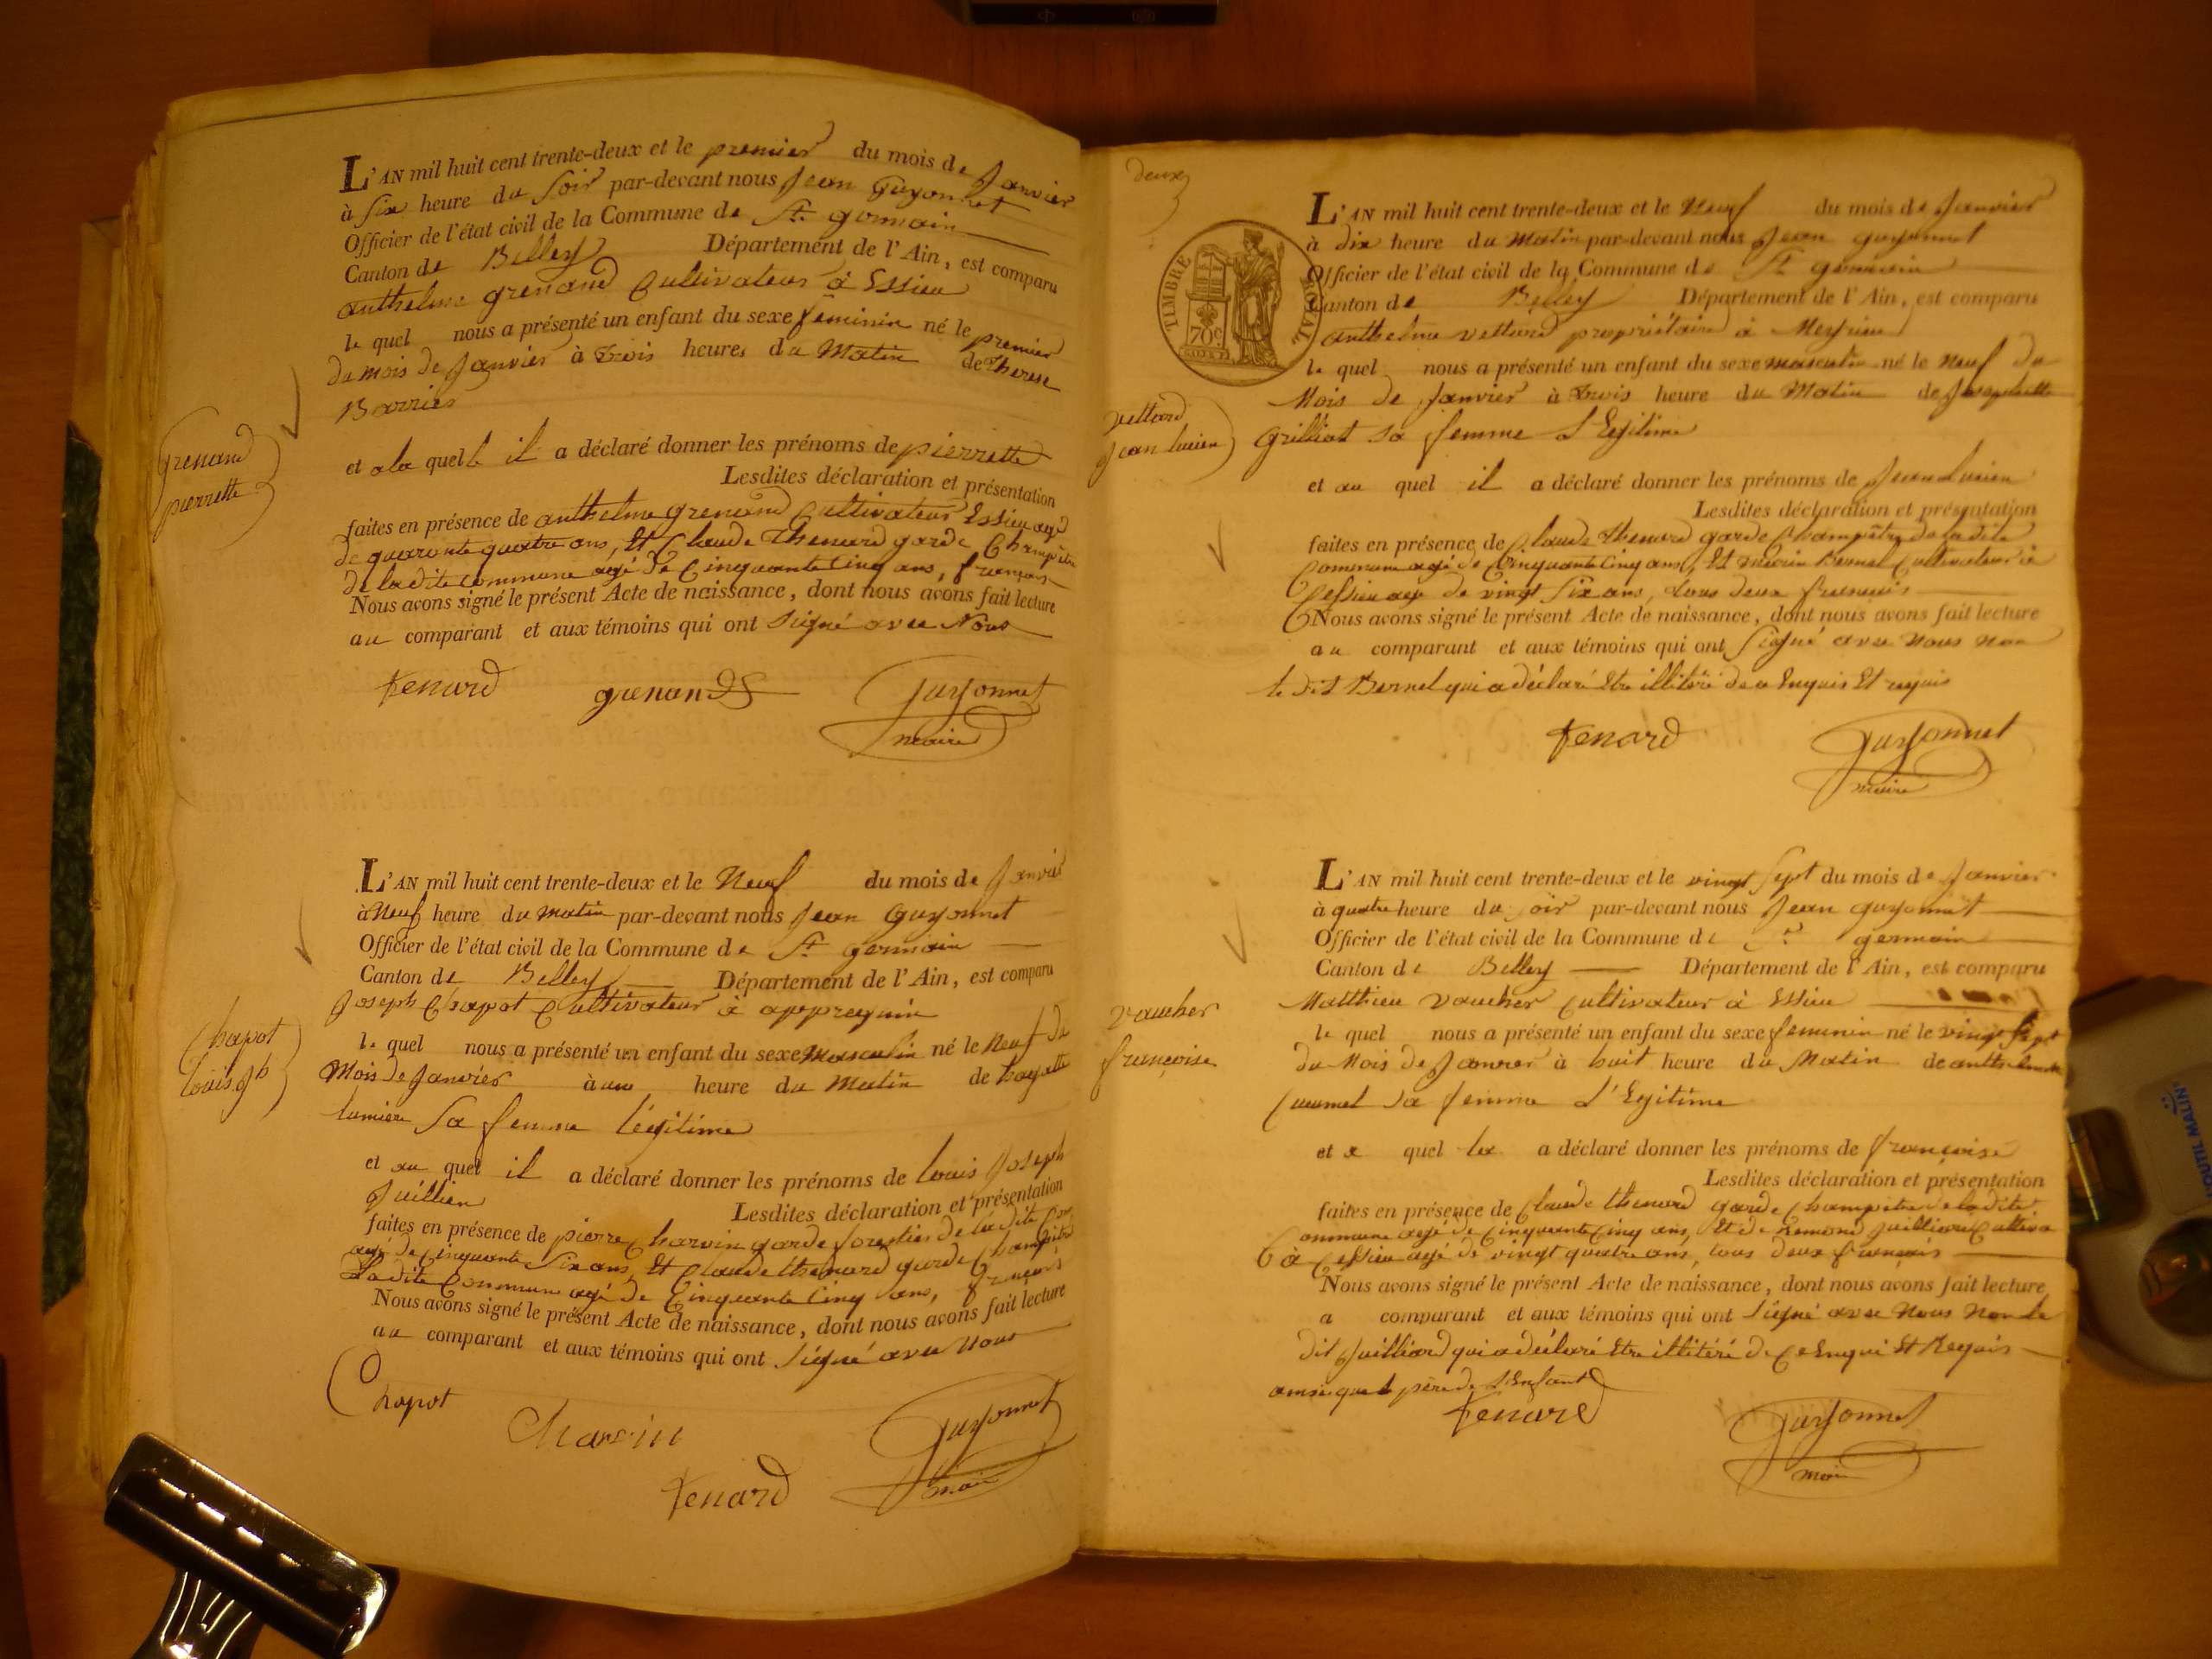 L'AN mil huit cent trente-deux et le premier du mois de Janvier
à six heure du soir par-devant nous Jean Guyonnet
Officier de l'état civil de la Commune de St. germain
Canton de Belley Département de l'Ain, est comparu
anthelme grenand Cultivateur à Essieu
le quel nous a présenté un enfant du sexe feminin né le premier
du mois de Janvier à trois heures du Matin de therese
Barrier
grenand
pierrette
et a la quelle il a déclaré donner les prénoms de pierrette
Lesdites déclaration et présentation
faites en présence de anthelme grenand Cultivateur Essieu agé
de quarante quatre ans, Et Claude thenard garde Champêtre
de ladite commune agé de Cinquante Cinq ans, français
Nous avons signé le présent Acte de naissance, dont nous avons fait lecture
au comparant et aux témoins qui ont signé avec Nous
tenard grenand Guyonnet
maire
L'AN mil huit cent trente-deux et le Neuf du mois de Janvier
à Neuf heure du matin par-devant nous Jean Guyonnet
Officier de l'état civil de la Commune de St. germain
Canton de Belley Département de l'Ain, est comparu
Joseph Chapot Cultivateur à appregnin
le quel nous a présenté un enfant du sexe Masculin né le Neuf du
Chapot
louis Jh
Mois de Janvier à une heure du Matin de
lumiere Sa femme légitime
et au quel il a déclaré donner les prénoms de louis Joseph
Juillien
Lesdites déclaration et présentation
faites en présence de pierre Charvin garde forestier de ladite Com
agé de Cinquante Six ans, Et Claude thenard garde Champêtre
Ladite Commune agé de Cinquante Cinq ans, français
Nous avons signé le présent Acte de naissance, dont nous avons fait lecture
au comparant et aux témoins qui ont signé avec Nous
Chapot
Charvin Guyonnet
tenard maire
deux
L'AN mil huit cent trente-deux et le Neuf du mois de Janvier
à dix heure du Matin par-devant nous Jean guyonnet
Officier de l'état civil de la Commune de St. germain
Canton de Belley Département de l'Ain, est comparu
TIMBRE ROYAL
70c
anthelme vettard propriétaire à Meyrieu
le quel nous a présenté un enfant du sexe masculin né le Neuf du
Mois de Janvier à trois heure du Matin de Josephette
vettard
Jean lucien
Grilliet sa femme L'Egitime
et au quel il a déclaré donner les prénoms de Jean Lucien
Lesdites déclaration et présentation
faites en présence de Claude thenard garde Champêtre de ladite
Commune agé de Cinquante Cinq ans, Et Bernel Cultivateur à
Cessieu agé de vingt Six ans, tous deux français
Nous avons signé le présent Acte de naissance, dont nous avons fait lecture
au comparant et aux témoins qui ont signé avec Nous Non
le dit Bernel qui a déclaré Etre illitéré de ce Enquis Et requis
tenard Guyonnet
maire
L'AN mil huit cent trente-deux et le vingt Sept du mois de Janvier
à quatre heure du soir par-devant nous Jean guyonnet
Officier de l'état civil de la Commune de St. germain
Canton de Belley Département de l'Ain, est comparu
Matthieu vaucher Cultivateur à Essieu
vaucher
françoise
le quel nous a présenté un enfant du sexe feminin né le vingt Sept
du Mois de Janvier à huit heure du Matin de anthelmette
Cuumel sa femme L'Egitime
et a quel la a déclaré donner les prénoms de françoise
Lesdites déclaration et présentation
faites en présence de Claude thenard garde Champêtre de ladite
Commune agé de Cinquante Cinq ans, Et de Remond Juilliard Cultiva
à Cessieu agé de vingt quatre ans, tous deux français
Nous avons signé le présent Acte de naissance, dont nous avons fait lecture
a comparant et aux témoins qui ont signé avec Nous Non le
dit Juilliard qui a déclaré Etre illitéré de Ce Enqui Et Requis
ainsi que le père de L'Enfant
tenard Guyonnet
maire
OUTIL MALIN